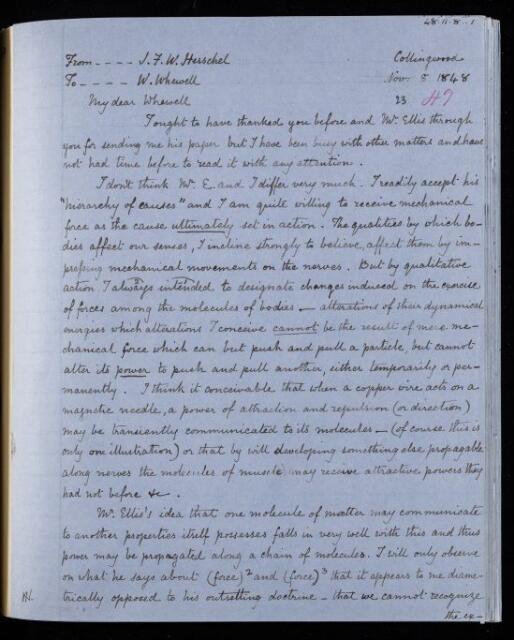 48.11.8.1
From - - - - J. F. W. Herschel Collingwood
To - - - - W. Whewell Nov. 8 1848
My dear Whewell 23 47
I ought to have thanked you before and Mr. Ellis through
you for sending me his paper but I have been busy with other matters and have
not had time before to read it with any attention.
I don't think Mr. E. and I differ very much. I readily accept his
"hierarchy of causes" and I am quite willing to receive mechanical
force as the cause ultimately set in action. The qualities by which bo-
dies affect our senses, I incline strongly to believe, affect them by im-
pressing mechanical movements on the nerves. But by qualitative
action I always intended to designate changes induced on the exercise
of forces among the molecules of bodies — alterations of their dynamical
energies which alterations I conceive cannot be the result of mere me-
chanical force which can but push and pull a particle, but cannot
alter its power to push and pull another, either temporarily or per-
manently. I think it conceivable that when a copper wire acts on a
magnetic needle, a power of attraction and repulsion (or direction)
may be transiently communicated to its molecules — (of course this is
only one illustration) or that by will developing something else propagable
along nerves the molecules of muscle may receive attractive powers they
had not before &c.
Mr. Ellis's idea that one molecule of matter may communicate
to another properties itself possesses falls in very well with this and thus
power may be propagated along a chain of molecules. I will only observe
on what he says about (force)² and (force)³ that it appears to me diame-
trically opposed to his outsetting doctrine - that we cannot recognize
the ex-